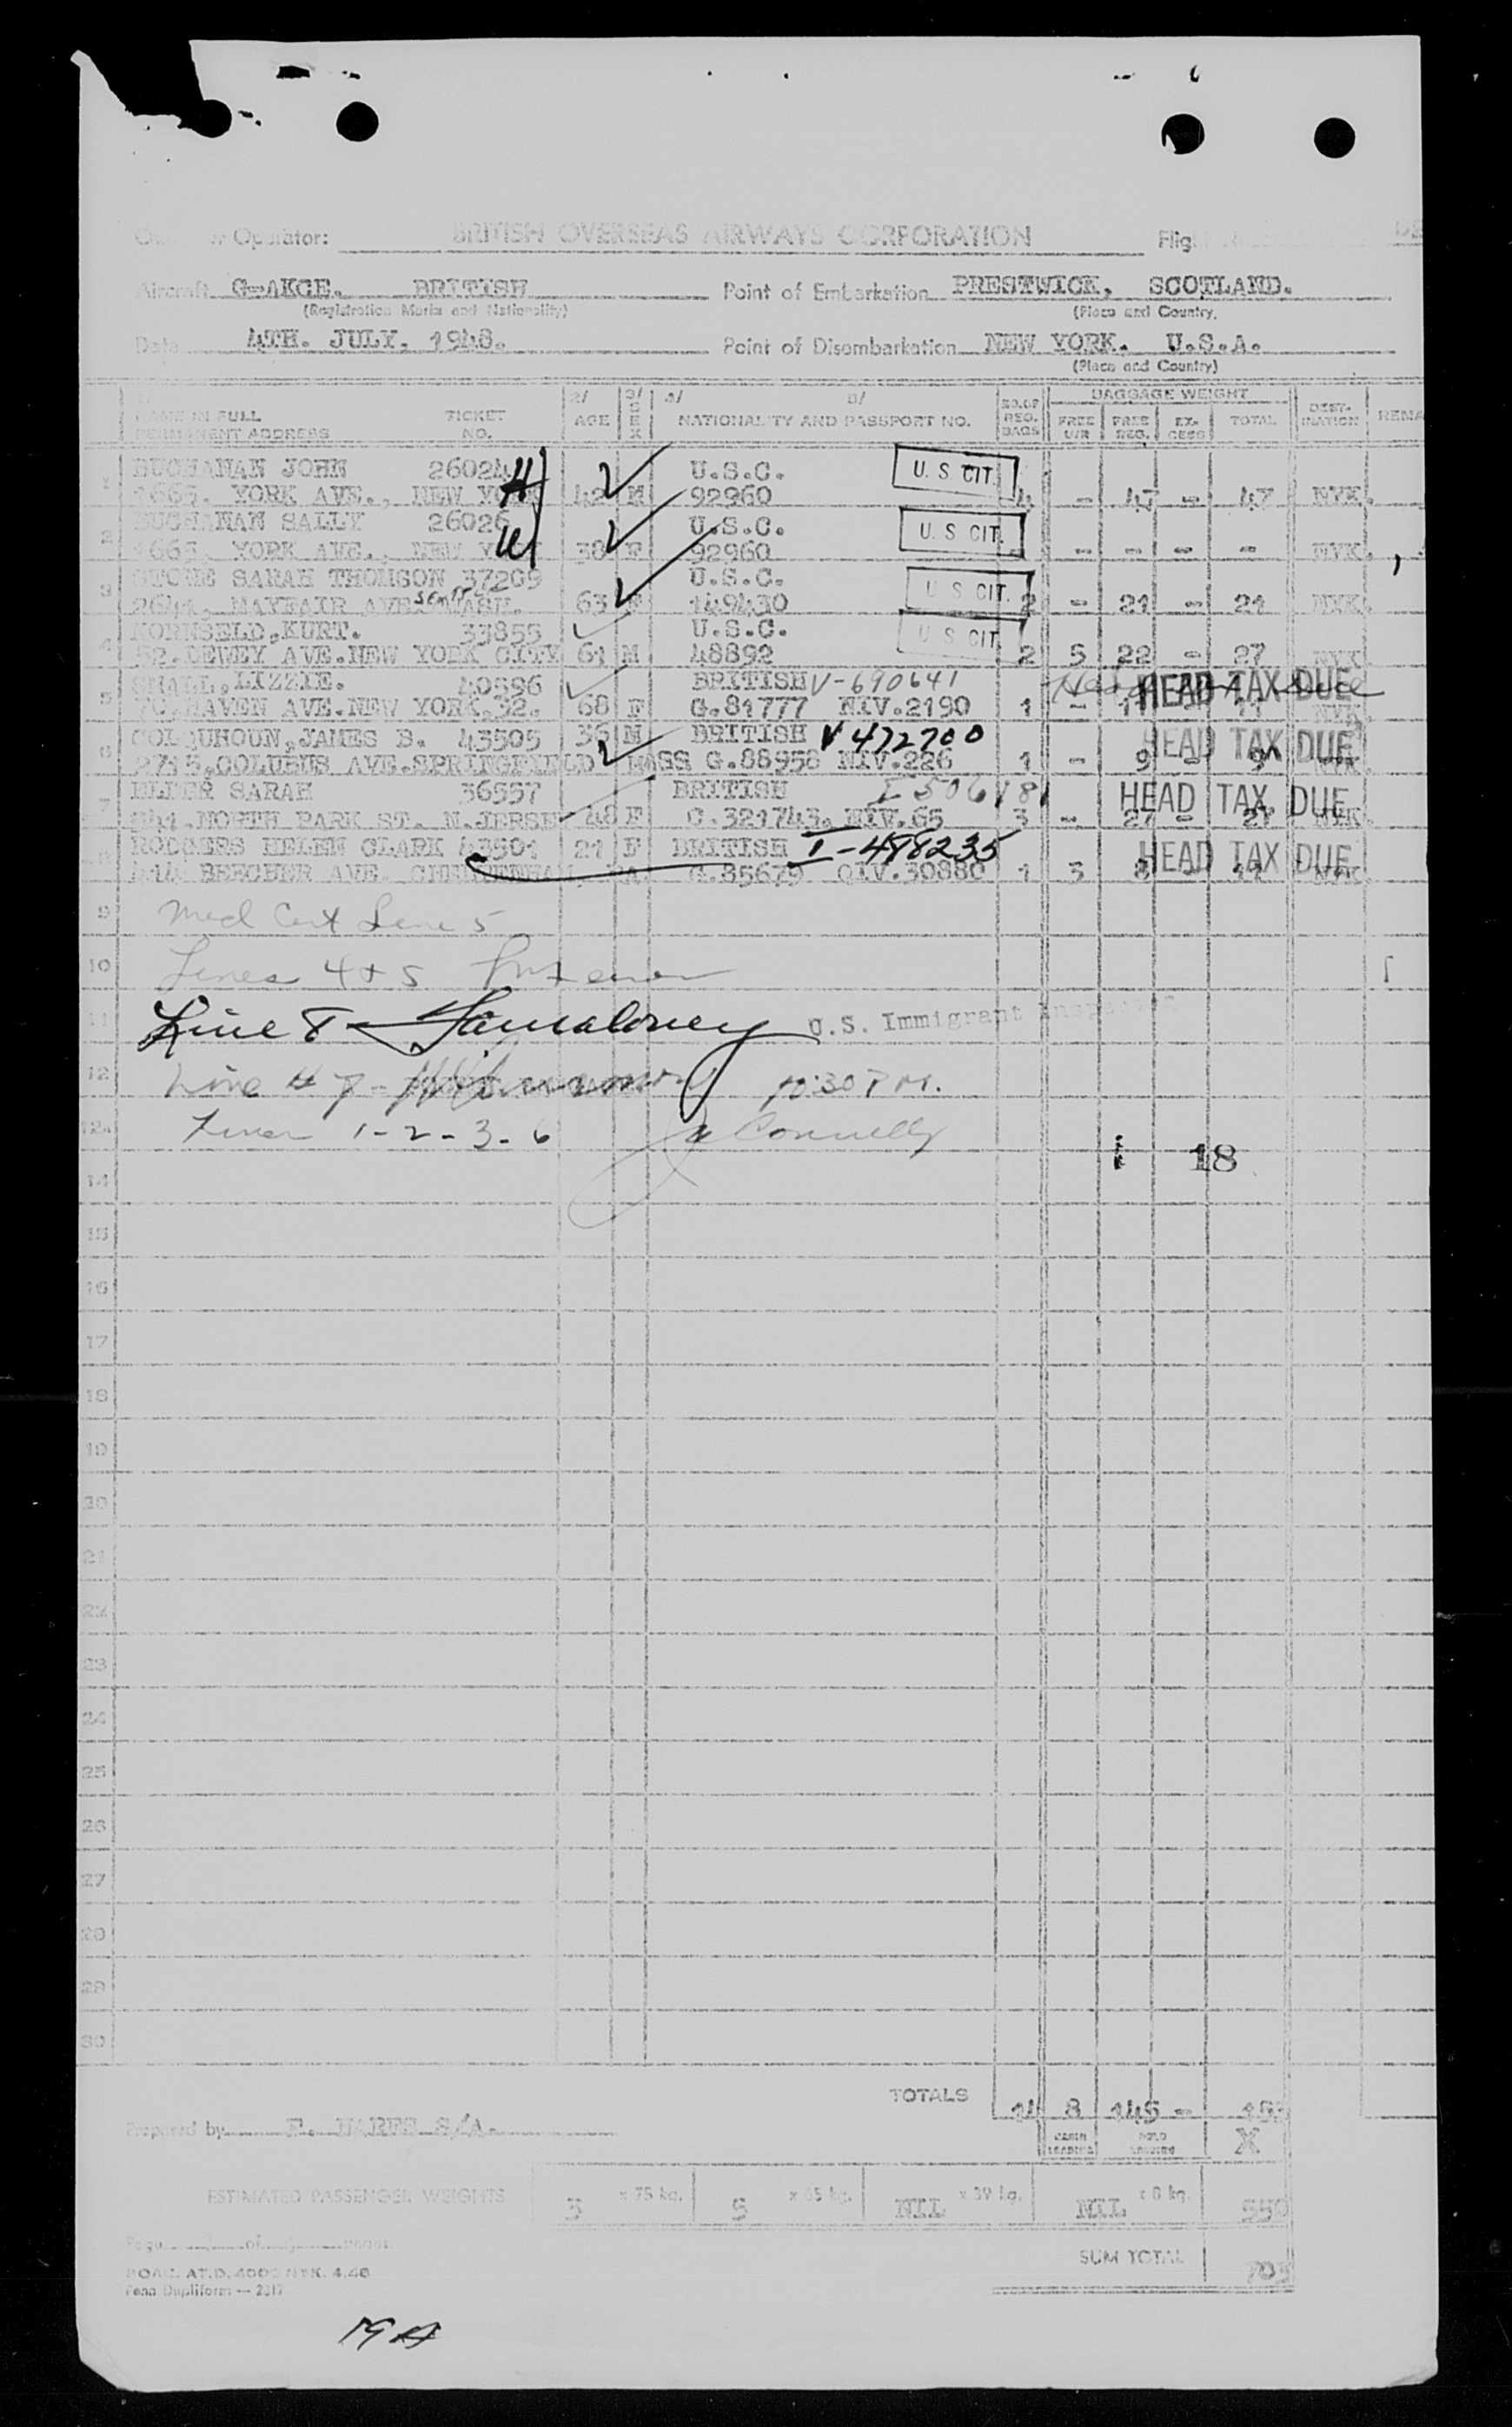 Operator: BRITISH OVERSEAS AIRWAYS CORPORATION
Aircraft G-AKGE. BRITISH Point of Embarkation PRESTWICK, SCOTLAND.
(Registration Marks and Nationality) (Place and Country)
Date 4TH. JULY. 1948. Point of Disembarkation NEW YORK. U.S.A.
(Place and Country)
NAME IN FULL TICKET AGE SEX NATIONALITY AND PASSPORT NO. NO.OF REG. BAGS BAGGAGE WEIGHT DEST-INATION REMA
PERMANENT ADDRESS NO. FREE U/R FREE REG. EX-CESS TOTAL
1 BUCHANAN JOHN 26024 H U.S.C. U. S CIT.
1665. YORK AVE., NEW YORK 42 M 92960 4 - 47 - 47 NYK.
2 BUCHANAN SALLY 26026 W U.S.C. U. S CIT.
1665. YORK AVE., NEW YORK 38 F 92960 - - - - NYK.
3 STONE SARAH THOMSON 37209 U.S.C. U S CIT.
2641, MAYFAIR AVE. WASH. 63 F 149430 2 - 21 - 21 NYK.
4 KURT. 33855 U.S.C. U S CIT.
52.DEWEY AVE.NEW YORK CITY 61 M 48892 2 5 22 - 27 NYK
5 SMALL, LIZZIE. 40596 BRITISH V-690641 HEAD TAX DUE
70.HAVEN AVE.NEW YORK.32. 68 F G.81777 NIV.2190 1 - 11 - 11 NYK.
6 COLQUHOUN, JAMES B. 43505 36 M BRITISH V 472700 HEAD TAX DUE
COLUMBUS AVE.SPRINGFIELD MASS G.88958 NIV.226 1 - 9 - 9 NYK.
7 SARAH 36557 BRITISH HEAD TAX DUE
NORTH PARK ST. N.JERSE 48 F C.321743. NIV.65 3 - 27 - 27 NYK.
8 RODGERS HELEN CLARK 43501 21 F BRITISH I-498235 HEAD TAX DUE
BEECHER AVE. PA G.85679 QIV.30880 1 3 8 - 11 NYK.
9 Med Cert Line 5
10 Lines 4 + 5
11 Line 8 U.S. Immigrant Inspector
12 Line # 7 - 10:30 P M.
Lines 1-2-3-6 Connelly
18
14
15
16
17
18
19
20
21
22
23
24
25
26
27
28
29
30
TOTALS 14 8 145 -
Prepared by S/A.
CABIN LOADING HOLD LOADING X
ESTIMATED PASSENGER WEIGHTS 3 x 75 kg. 5 x 65 kg. NIL x 39 kg. NIL x 8 kg. 550
SUM TOTAL 703
Penn Dupliform — 2317